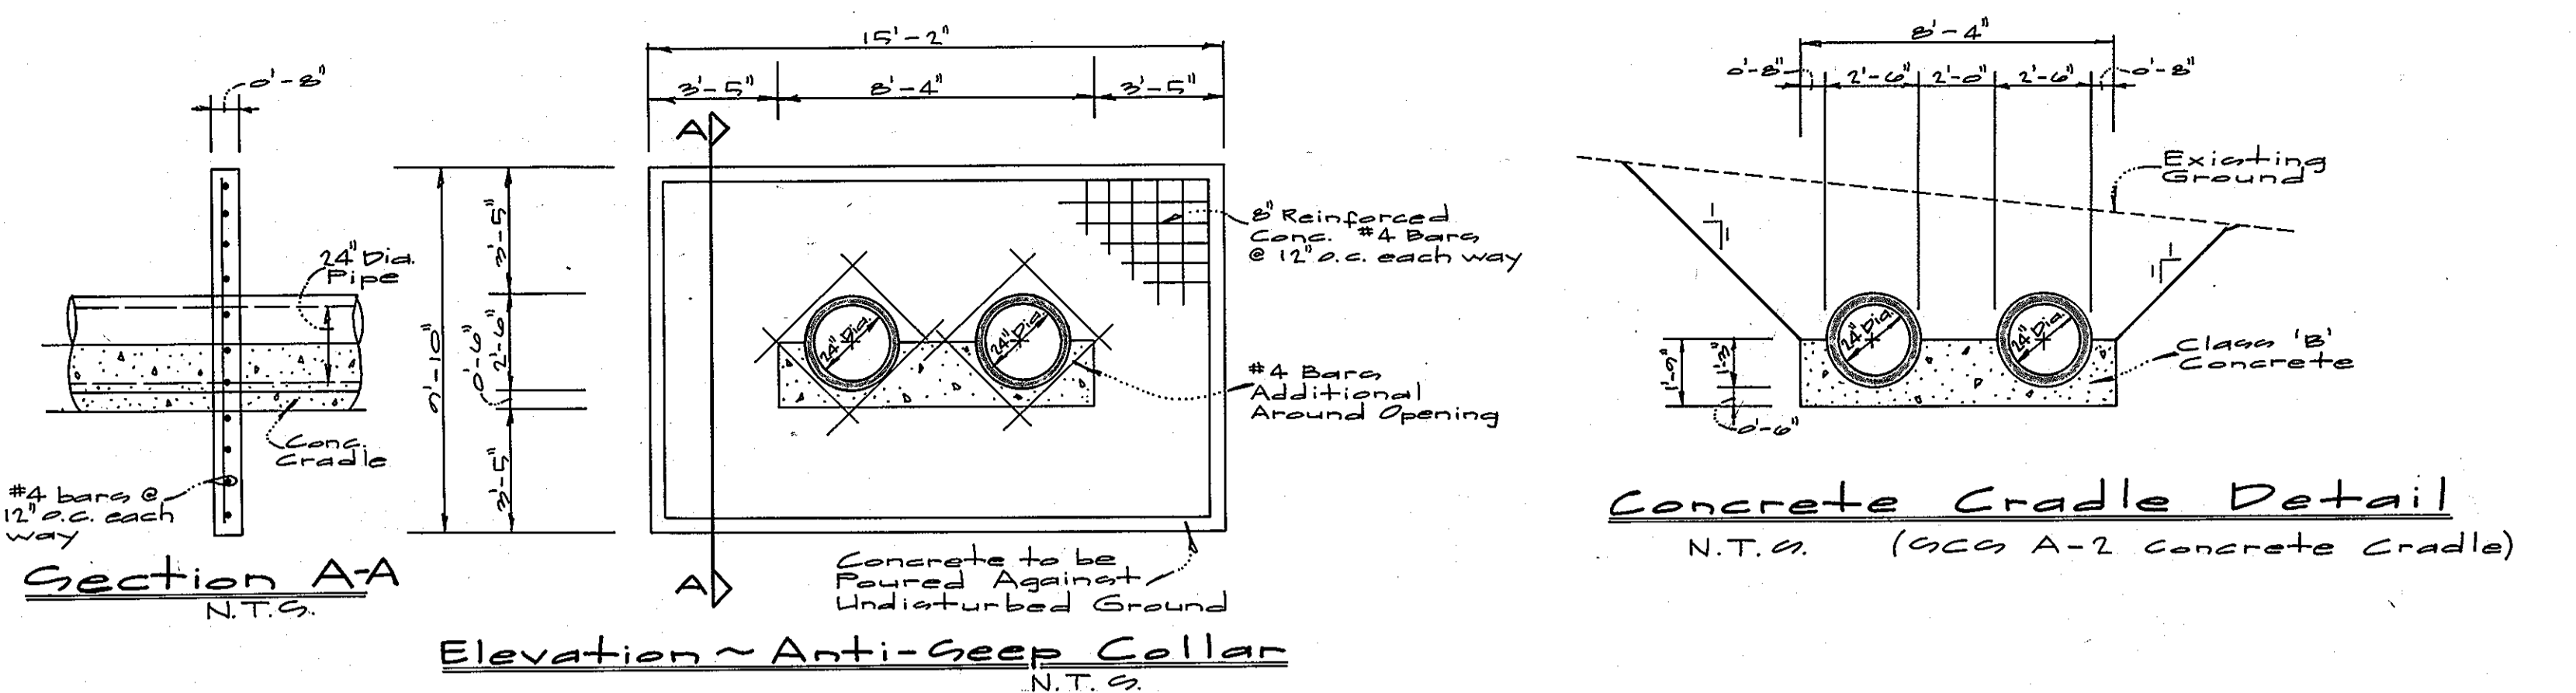 0'-8"
24" Dia.
Pipe
Conc.
Cradle
#4 bars @
12" o.c. each
way
Section A-A
N.T.S.
15'-2"
3'-5"
8'-4"
3'-5"
A
A
9'-10"
3'-5"
2'-6"
0'-6"
3'-5"
24" Dia.
24" Dia.
8" Reinforced
Conc. #4 Bars
@ 12" o.c. each way
#4 Bars
Additional
Around Opening
Concrete to be
Poured Against
Undisturbed Ground
Elevation ~ Anti-Seep Collar
N.T.S.
8'-4"
0'-8"
2'-6"
2'-0"
2'-6"
0'-8"
Existing
Ground
1
1
1
1
24" Dia.
24" Dia.
1'-9"
1'-3"
0'-6"
Class 'B'
Concrete
Concrete Cradle Detail
N.T.S. (SCS A-2 Concrete Cradle)